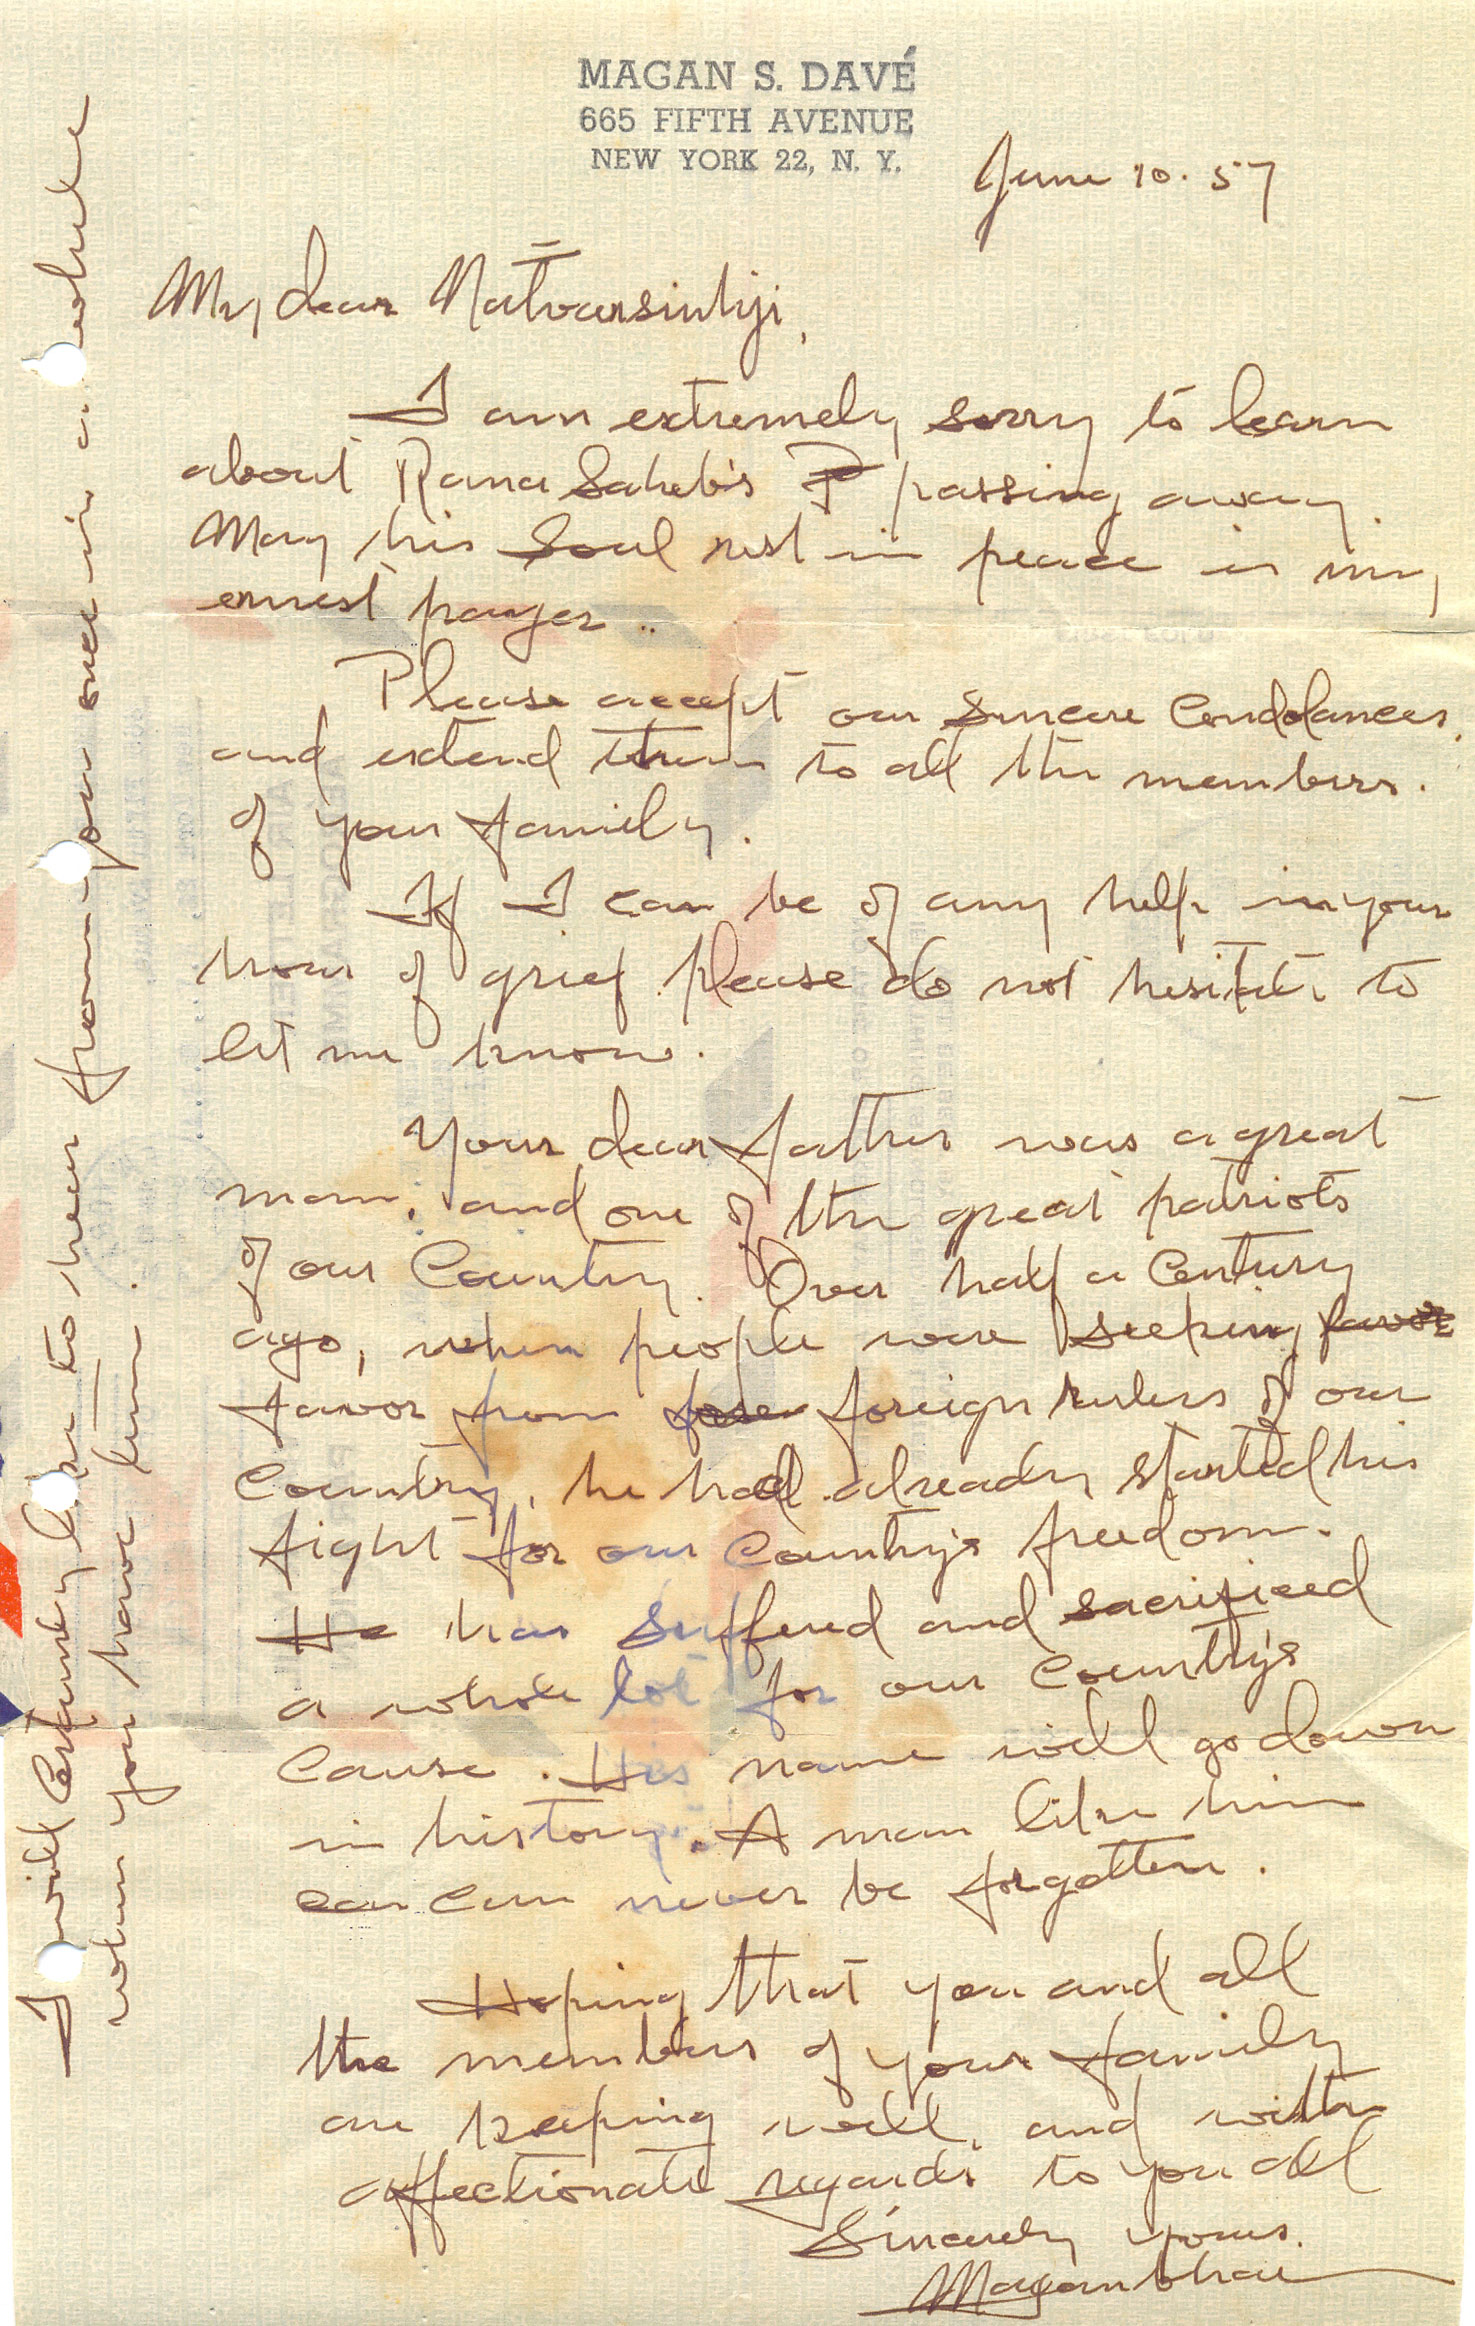 MAGAN S. DAVÉ
665 FIFTH AVENUE
NEW YORK 22, N. Y.
June 10. 57
My dear Natvarsinhji,
I am extremely sorry to learn
about Rana Saheb's P passing away.
May his Soul rest in peace is my
ernest prayer..
Please accept our Sincere Condolances.
and extend them to all the members.
of your family.
If I can be of any help in your
hour of grief please do not hesitate to
let me know.
Your dear father was a great
man, and one of the great patriots
of our Country. Over half a Century
ago, when people were seeking favor
favor from foreign rulers of our
Country, he had already started his
fight for our Country's freedom.
He has Suffered and sacrificed
a whole lot for our Country's
Cause. His name will go down
in history. A man like him
can can never be forgotten.
Hoping that you and all
the members of your family
are keeping well, and with
affectionate regards to you all
Sincerely yours.
Maganbhai
I will Certainly like to hear from you once in a while
when you have time.